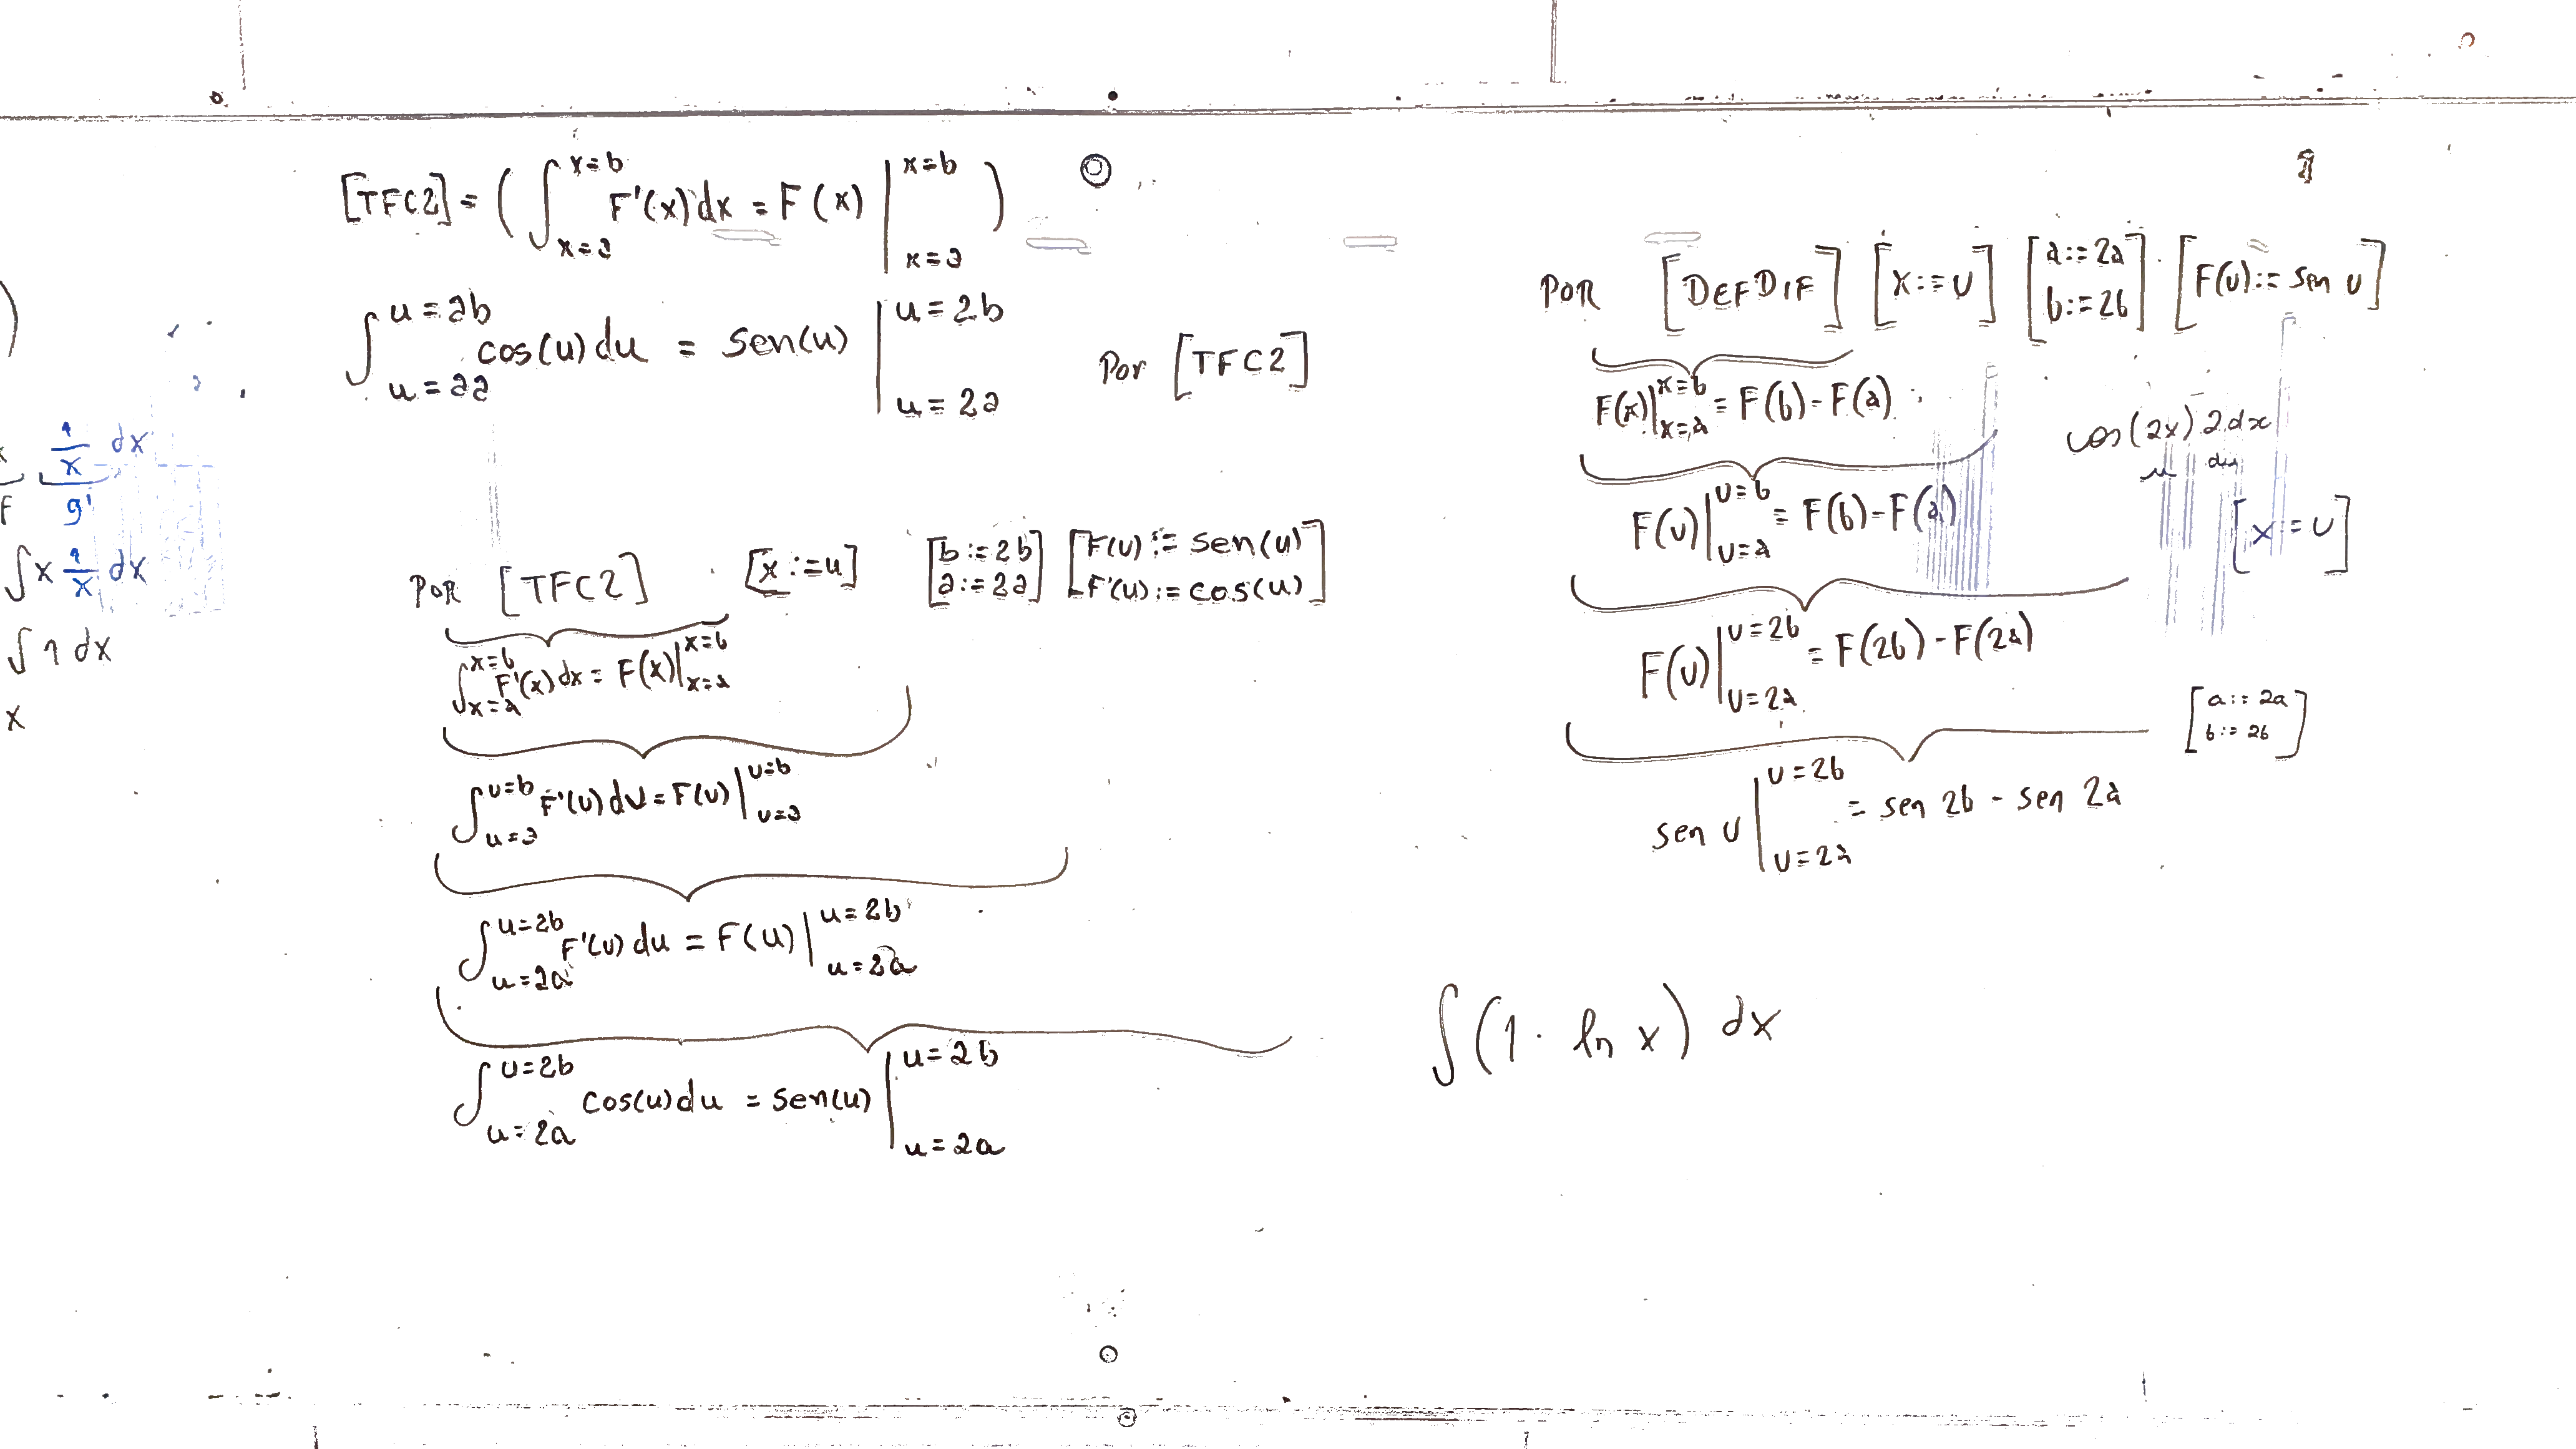 [TFC2] = ( ∫_{x=a}^{x=b} F'(x) dx = F(x) |_{x=a}^{x=b} )
∫_{u=2a}^{u=2b} cos(u) du = sen(u) |_{u=2a}^{u=2b} Por [TFC2]
1/x dx
g'
∫ x 1/x dx
∫ 1 dx
x
POR [TFC2] [x:=u] [b:=2b a:=2a] [F(u):=sen(u) F'(u):=cos(u)]
∫_{x=a}^{x=b} F'(x) dx = F(x) |_{x=a}^{x=b}
∫_{u=a}^{u=b} F'(u) du = F(u) |_{u=a}^{u=b}
∫_{u=2a}^{u=2b} F'(u) du = F(u) |_{u=2a}^{u=2b}
∫_{u=2a}^{u=2b} cos(u) du = sen(u) |_{u=2a}^{u=2b}
POR [DEFDIF] [x:=u] [a:=2a b:=2b] [F(u):=sen u]
F(x) |_{x=a}^{x=b} = F(b) - F(a)
cos(2x) 2dx
u du
F(u) |_{u=a}^{u=b} = F(b) - F(a) [x:=u]
F(u) |_{u=2a}^{u=2b} = F(2b) - F(2a) [a:=2a b:=2b]
sen u |_{u=2a}^{u=2b} = sen 2b - sen 2a
∫ (1 · ln x) dx